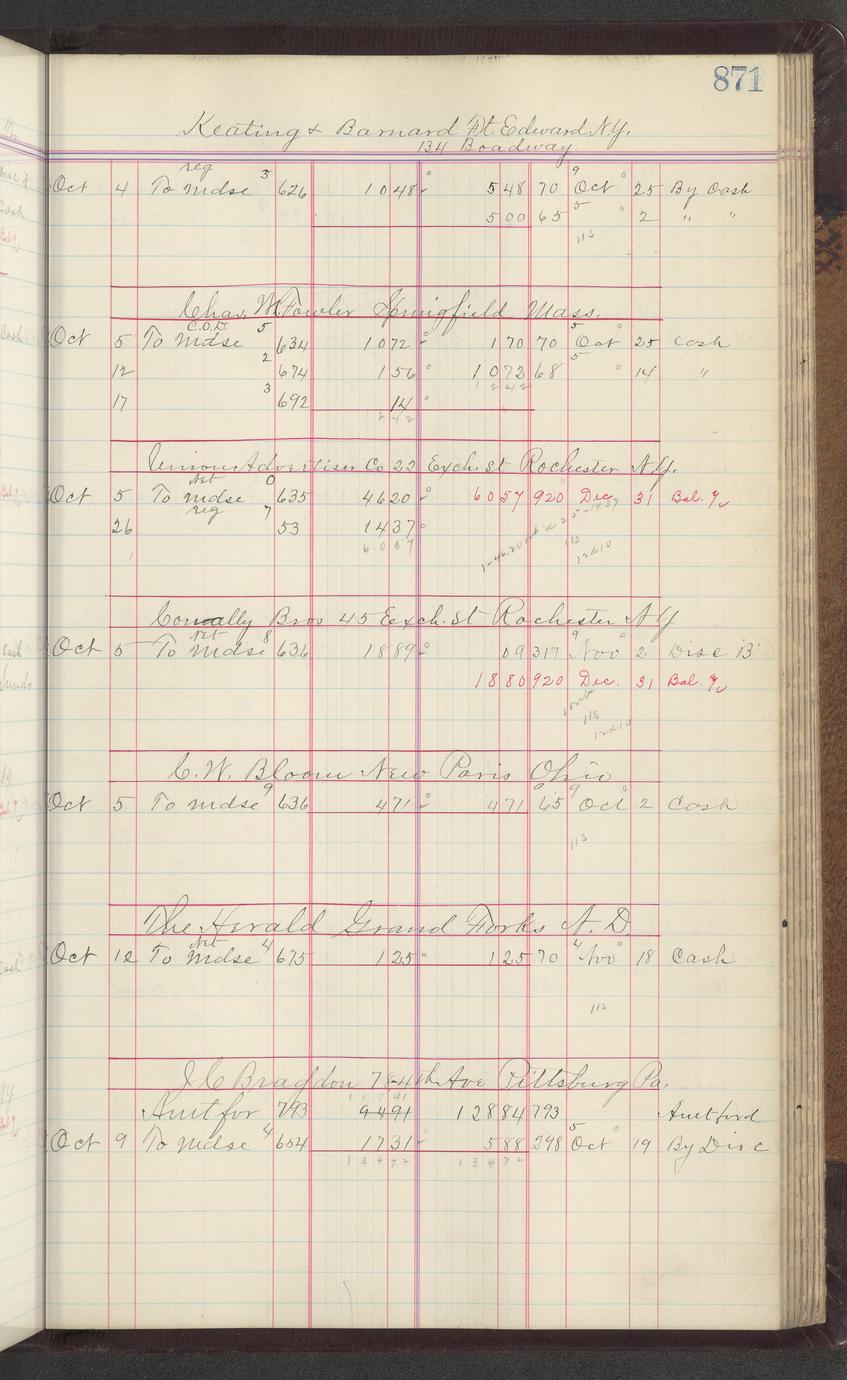 871
Keating & Barnard Ft. Edward N.Y.
134 Boadway.
reg
Oct 4 To mdse 3 626 1048 548 70 9 Oct 25 By Cash
500 65 5 2 " "
113
Chas. M. Fowler Springfield Mass.
C.O.D.
Oct 5 To mdse 5 634 1072 170 70 5 Oct 25 Cash
12 2 674 156 1072 68 5 14 "
1242
17 3 692 14
1242
Union Advertiser Co 22 Exch. St Rochester N.Y.
Net
Oct 5 To mdse 0 635 4620 6057 920 Dec 31 Bal.
reg
26 7 53 1437
6057
113
12010
Conally Bros 45 Eexch. St Rochester N.Y
Net
Oct 5 To mdse 8 636 1889 09 317 9 Nov 2 Disc B
1880 920 Dec. 31 Bal.
113
C. W. Bloom New Paris Ohio
Oct 5 To mdse 9 636 471 471 65 9 Oct 2 Cash
113
The Herald Grand Forks N. D
Net
Oct 12 To mdse 4 675 125 125 70 4 Nov 18 Cash
113
J C Bragdon 78-4th Ave Pittsburg Pa.
Amt for 793 9491 12884 793 Amt ford
Oct 9 To mdse 4 654 1731 588 298 5 Oct 19 By Disc
13472 13472